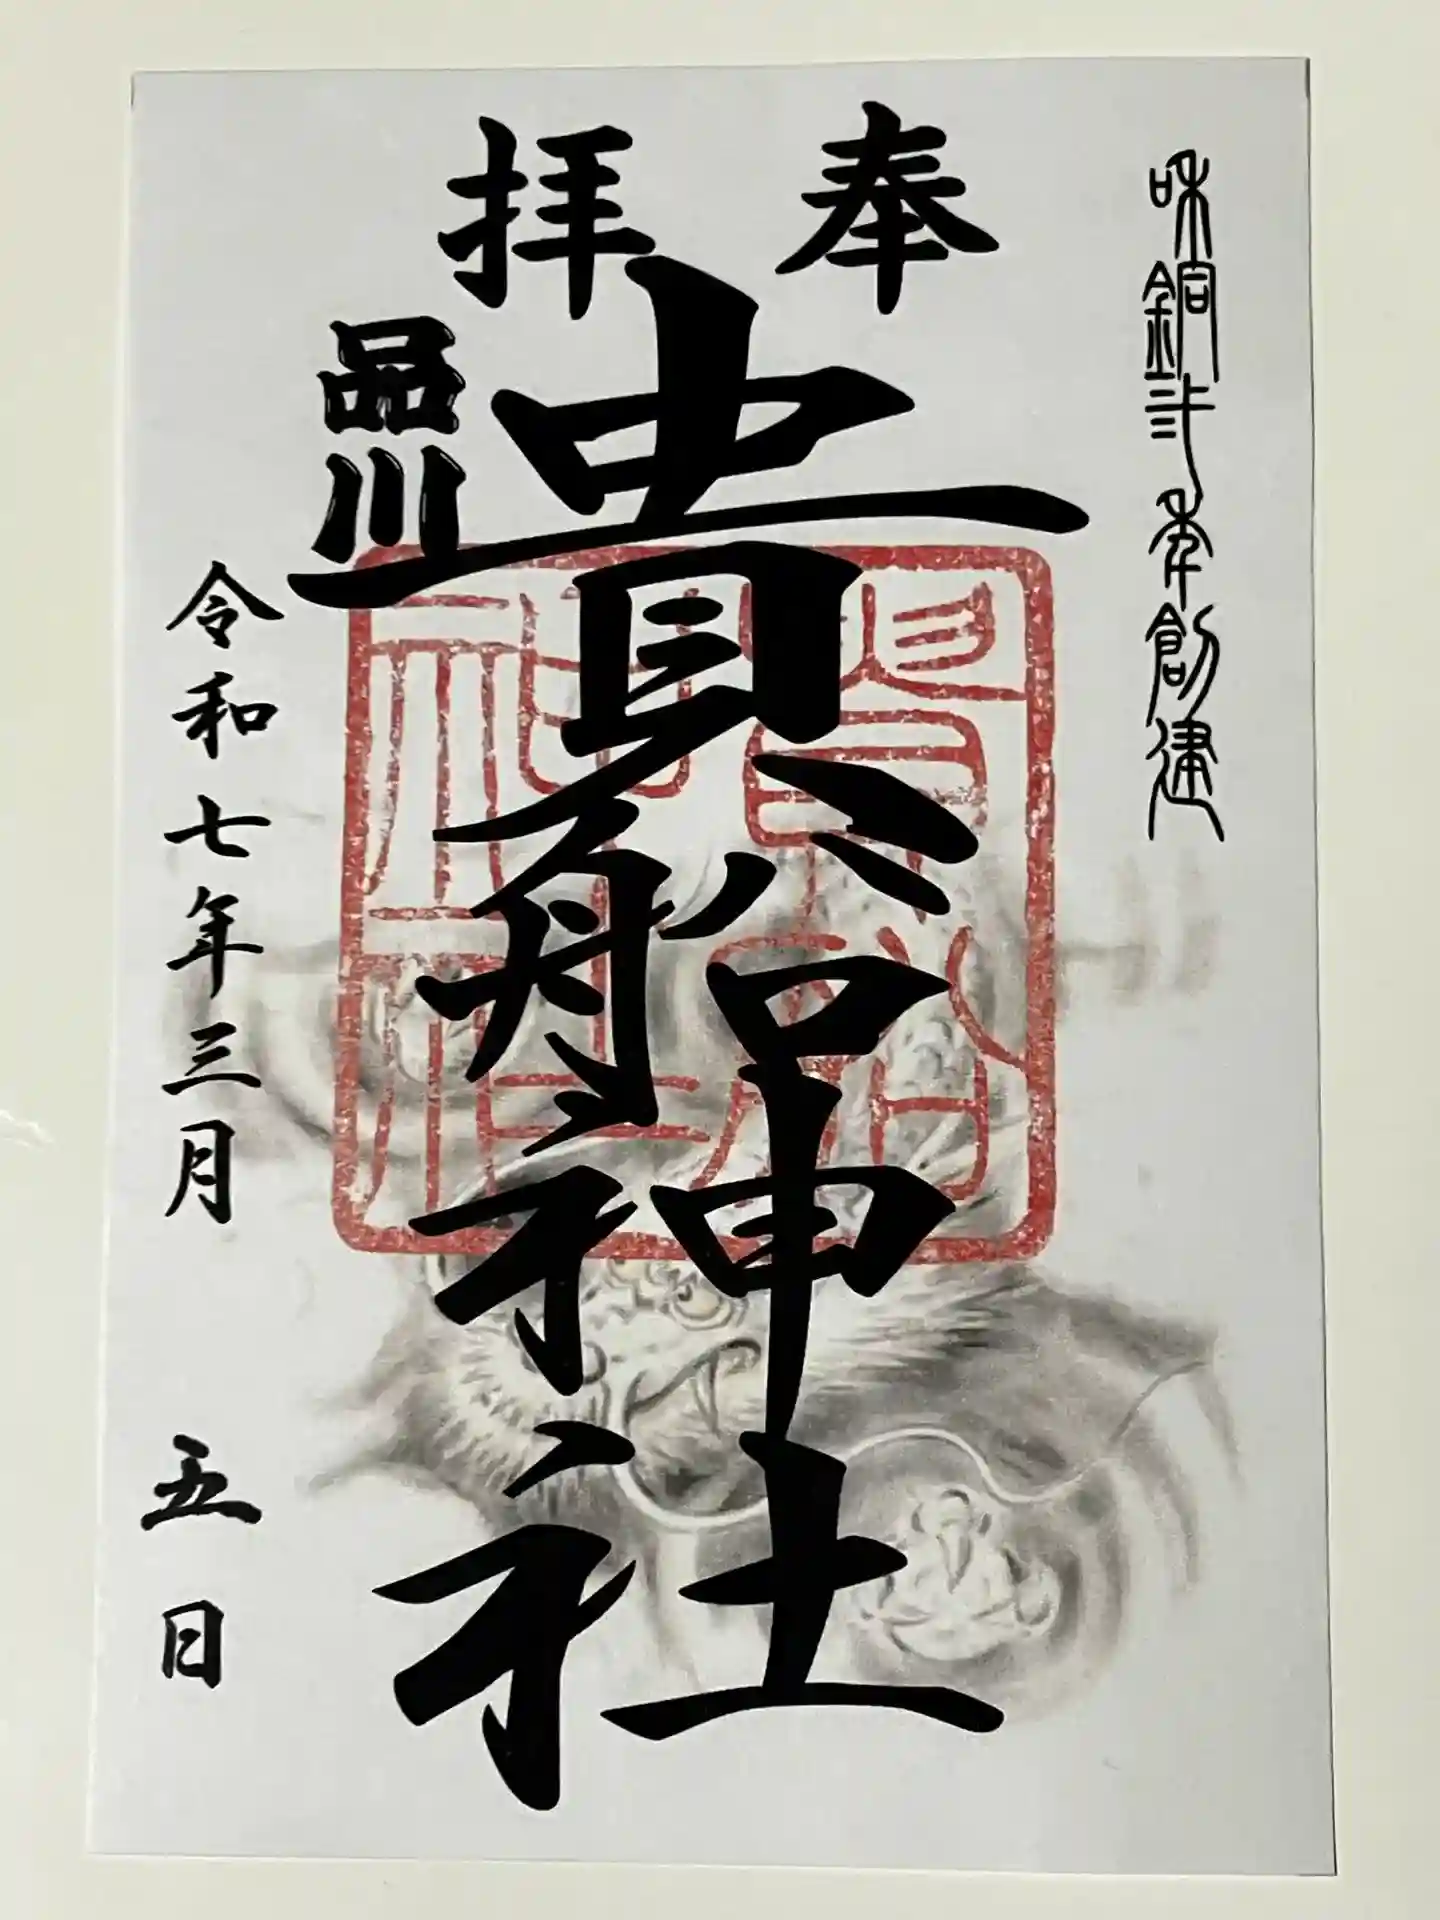 和銅弐年創建
奉拝
貴船神社
品川
令和七年三月五日
貴船神社